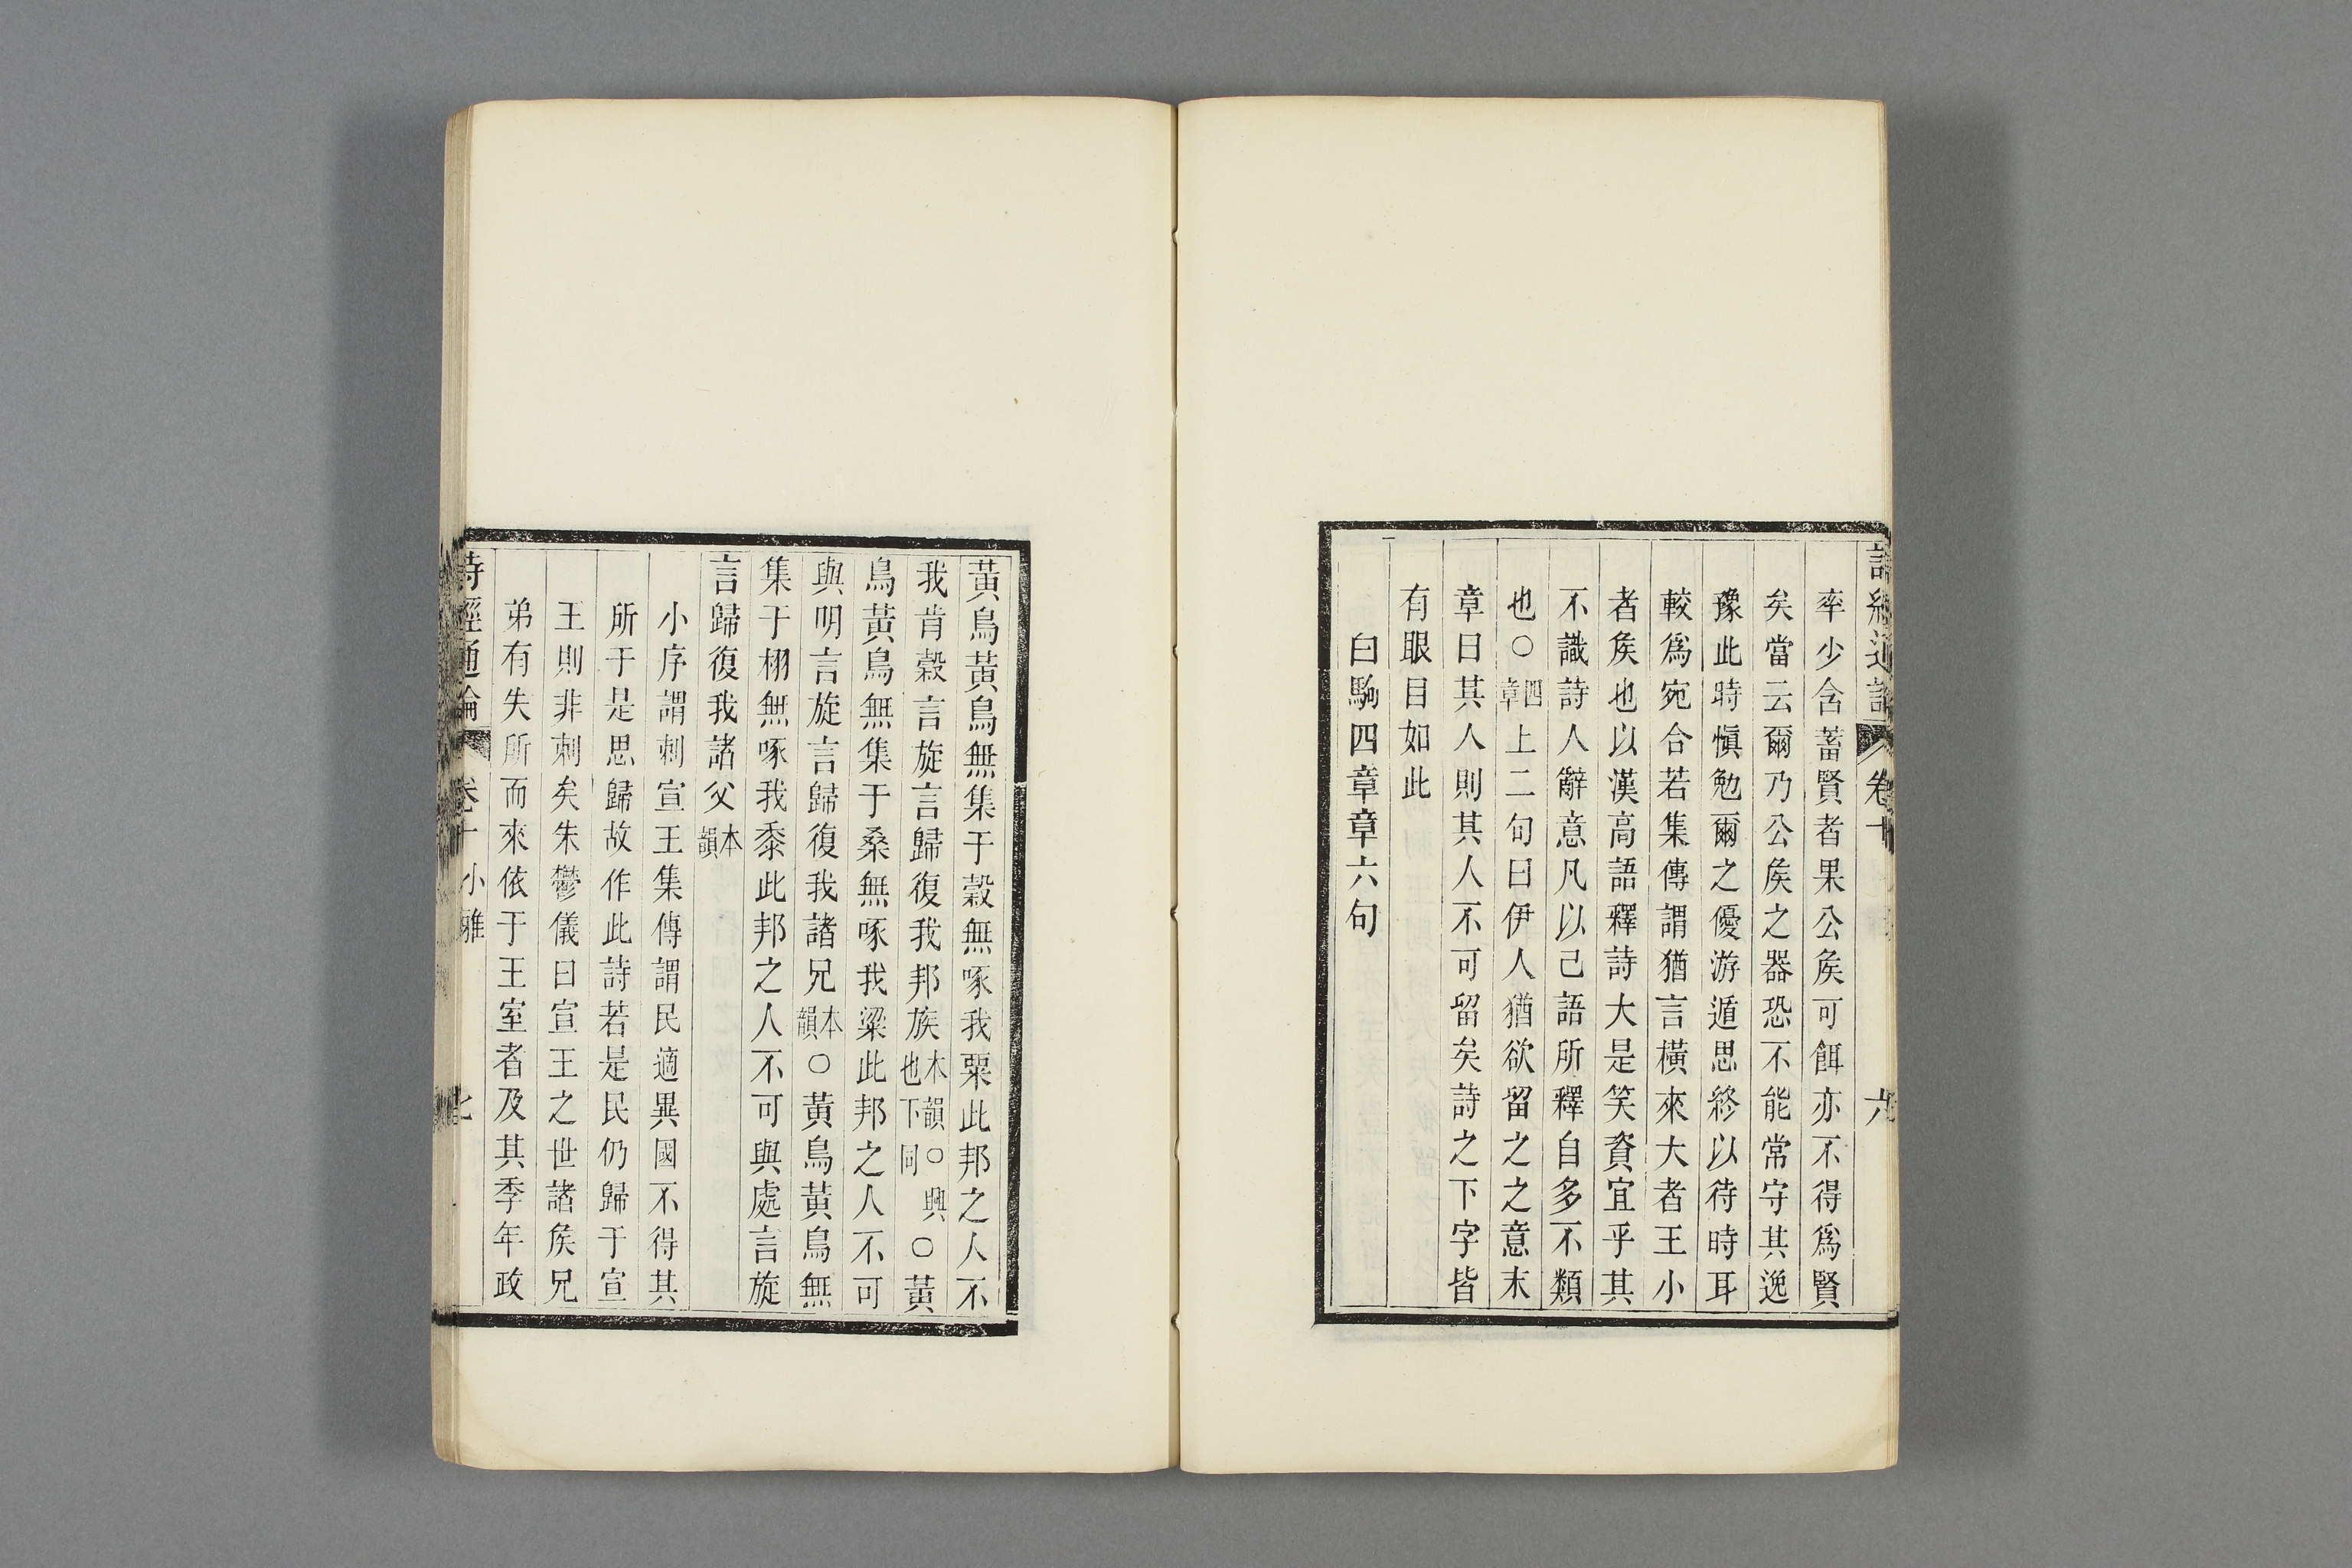 詩經通論 卷十 六
率少含蓄賢者果公矦可餌亦不得爲賢
矣當云爾乃公矦之器恐不能常守其逸
豫此時愼勉爾之優游遁思終以待時耳
較爲宛合若集傳謂猶言橫來大者王小
者矦也以漢高語釋詩大是笑資宜乎其
不識詩人辭意凡以己語所釋自多不類
也○四章上二句曰伊人猶欲留之之意末
章曰其人則其人不可留矣詩之下字皆
有眼目如此
白駒四章章六句
黃鳥黃鳥無集于穀無啄我粟此邦之人不
我肯穀言旋言歸復我邦族本韻○興也下同○黃
鳥黃鳥無集于桑無啄我粱此邦之人不可
與明言旋言歸復我諸兄本韻○黃鳥黃鳥無
集于栩無啄我黍此邦之人不可與處言旋
言歸復我諸父本韻
小序謂刺宣王集傳謂民適異國不得其
所于是思歸故作此詩若是民仍歸于宣
王則非刺矣朱鬱儀曰宣王之世諸矦兄
弟有失所而來依于王室者及其季年政
詩經通論 卷十 小雅 七